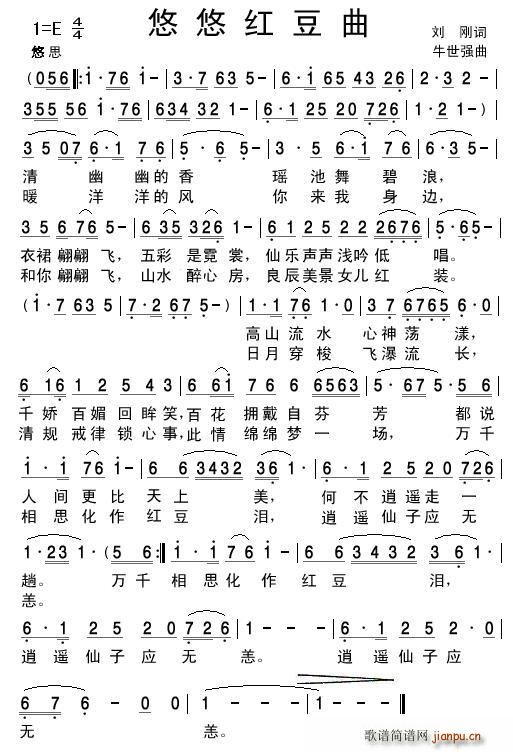 悠悠红豆曲
1=E 4/4
刘 刚词
悠思
牛世强曲
(056|:1·76 1-|3·7 63 5-|6·1 65 43 26|
355 56 1-|634 32 1-|6·1 25 20 726|1·2 1-)|
3 5 07 6·1 76|5·6 5-|3·5 6·1 76|5·3 5-|
清 幽 幽的香 瑶 池 舞 碧 浪，
暖 洋 洋的风 你 来 我 身 边，
35 676 5-|6 35 326-|61 25 22 2676|5·65-|
衣裙 翩翩 飞，五彩 是霓 裳，仙乐声声浅吟低 唱。
和你 翩翩 飞，山水 醉心 房，良辰美景女儿红 装。
(1·7 63 5|7·2 67 5-)|1·1 76 1 0|37 6765 6·0|
高山 流 水 心神 荡 漾，
日月 穿 梭 飞瀑 流 长，
6 16 12 543|6 61 76 6563|5·67 5·56|
千 娇 百媚 回眸笑，百花 拥戴自 芬 芳 都说
清 规 戒律 锁心事，此情 绵绵梦 一 场，万千
1·1 76 1-|66 3432 36·|61 25 20 726|
人 间 更比 天上 美， 何 不 逍遥走 一
相 思 化作 红豆 泪， 逍 遥 仙子应 无
1·23 1·(56:|1·1 761·|66 3432 361·|
趟。 万千 相思化 作 红 豆 泪，
恙。
6·1 25 20 5·726|1--|6·1 25 20|
逍 遥 仙子 应 无 恙。 逍 遥 仙子应
676-00|1---|1--|
无 恙。
歌谱简谱网
jianpu.cn